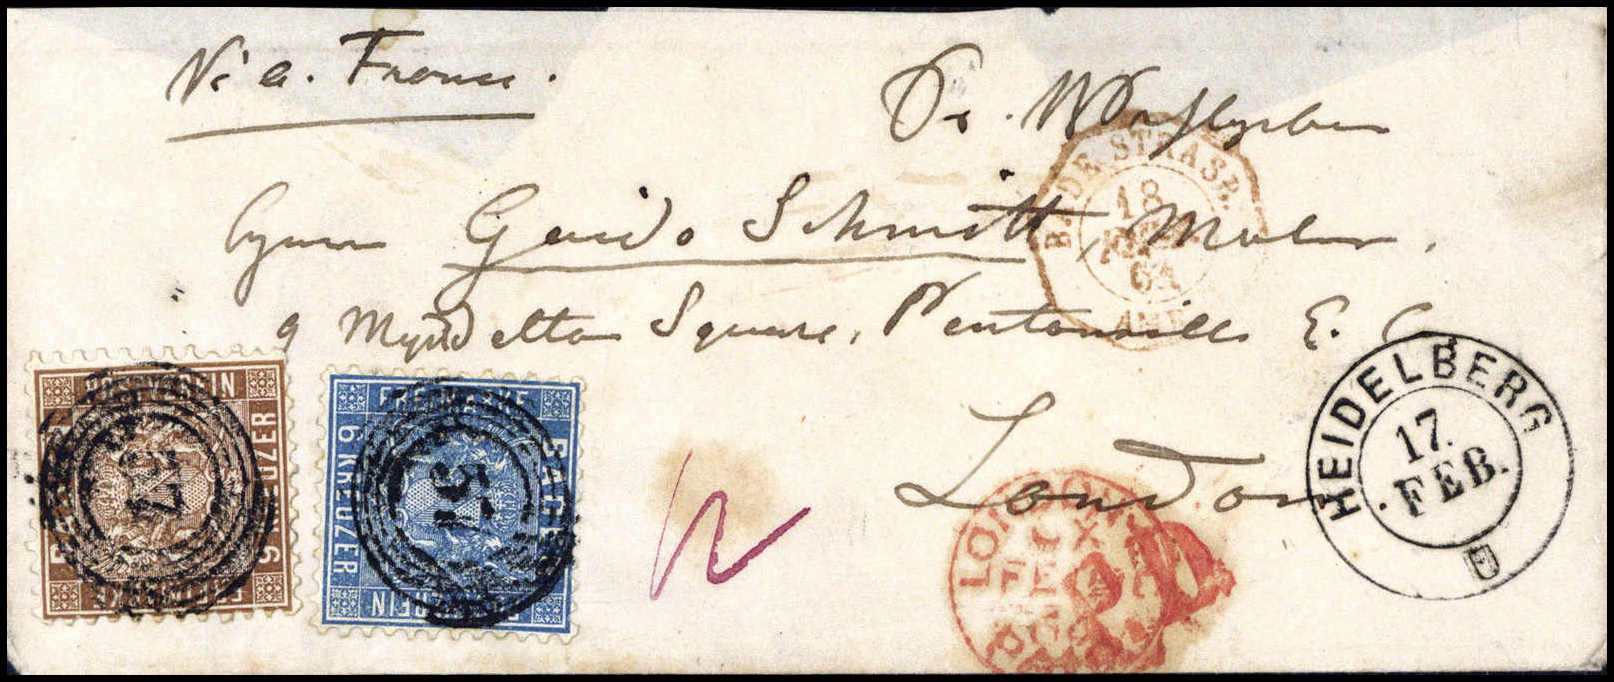 Via. France.
Sr.
Guido Schmitt, Maler.
9 Myddelton Square, Pentonville E. C.
London
BADE STRASB.
18
FEVR.
64
AMB
HEIDELBERG
17.
FEB.
LONDON
FE
POSTVEREIN
9 KREUZER
FREIMARKE
BADEN
57
FREIMARKE
BADEN
6 KREUZER
POSTVEREIN
57